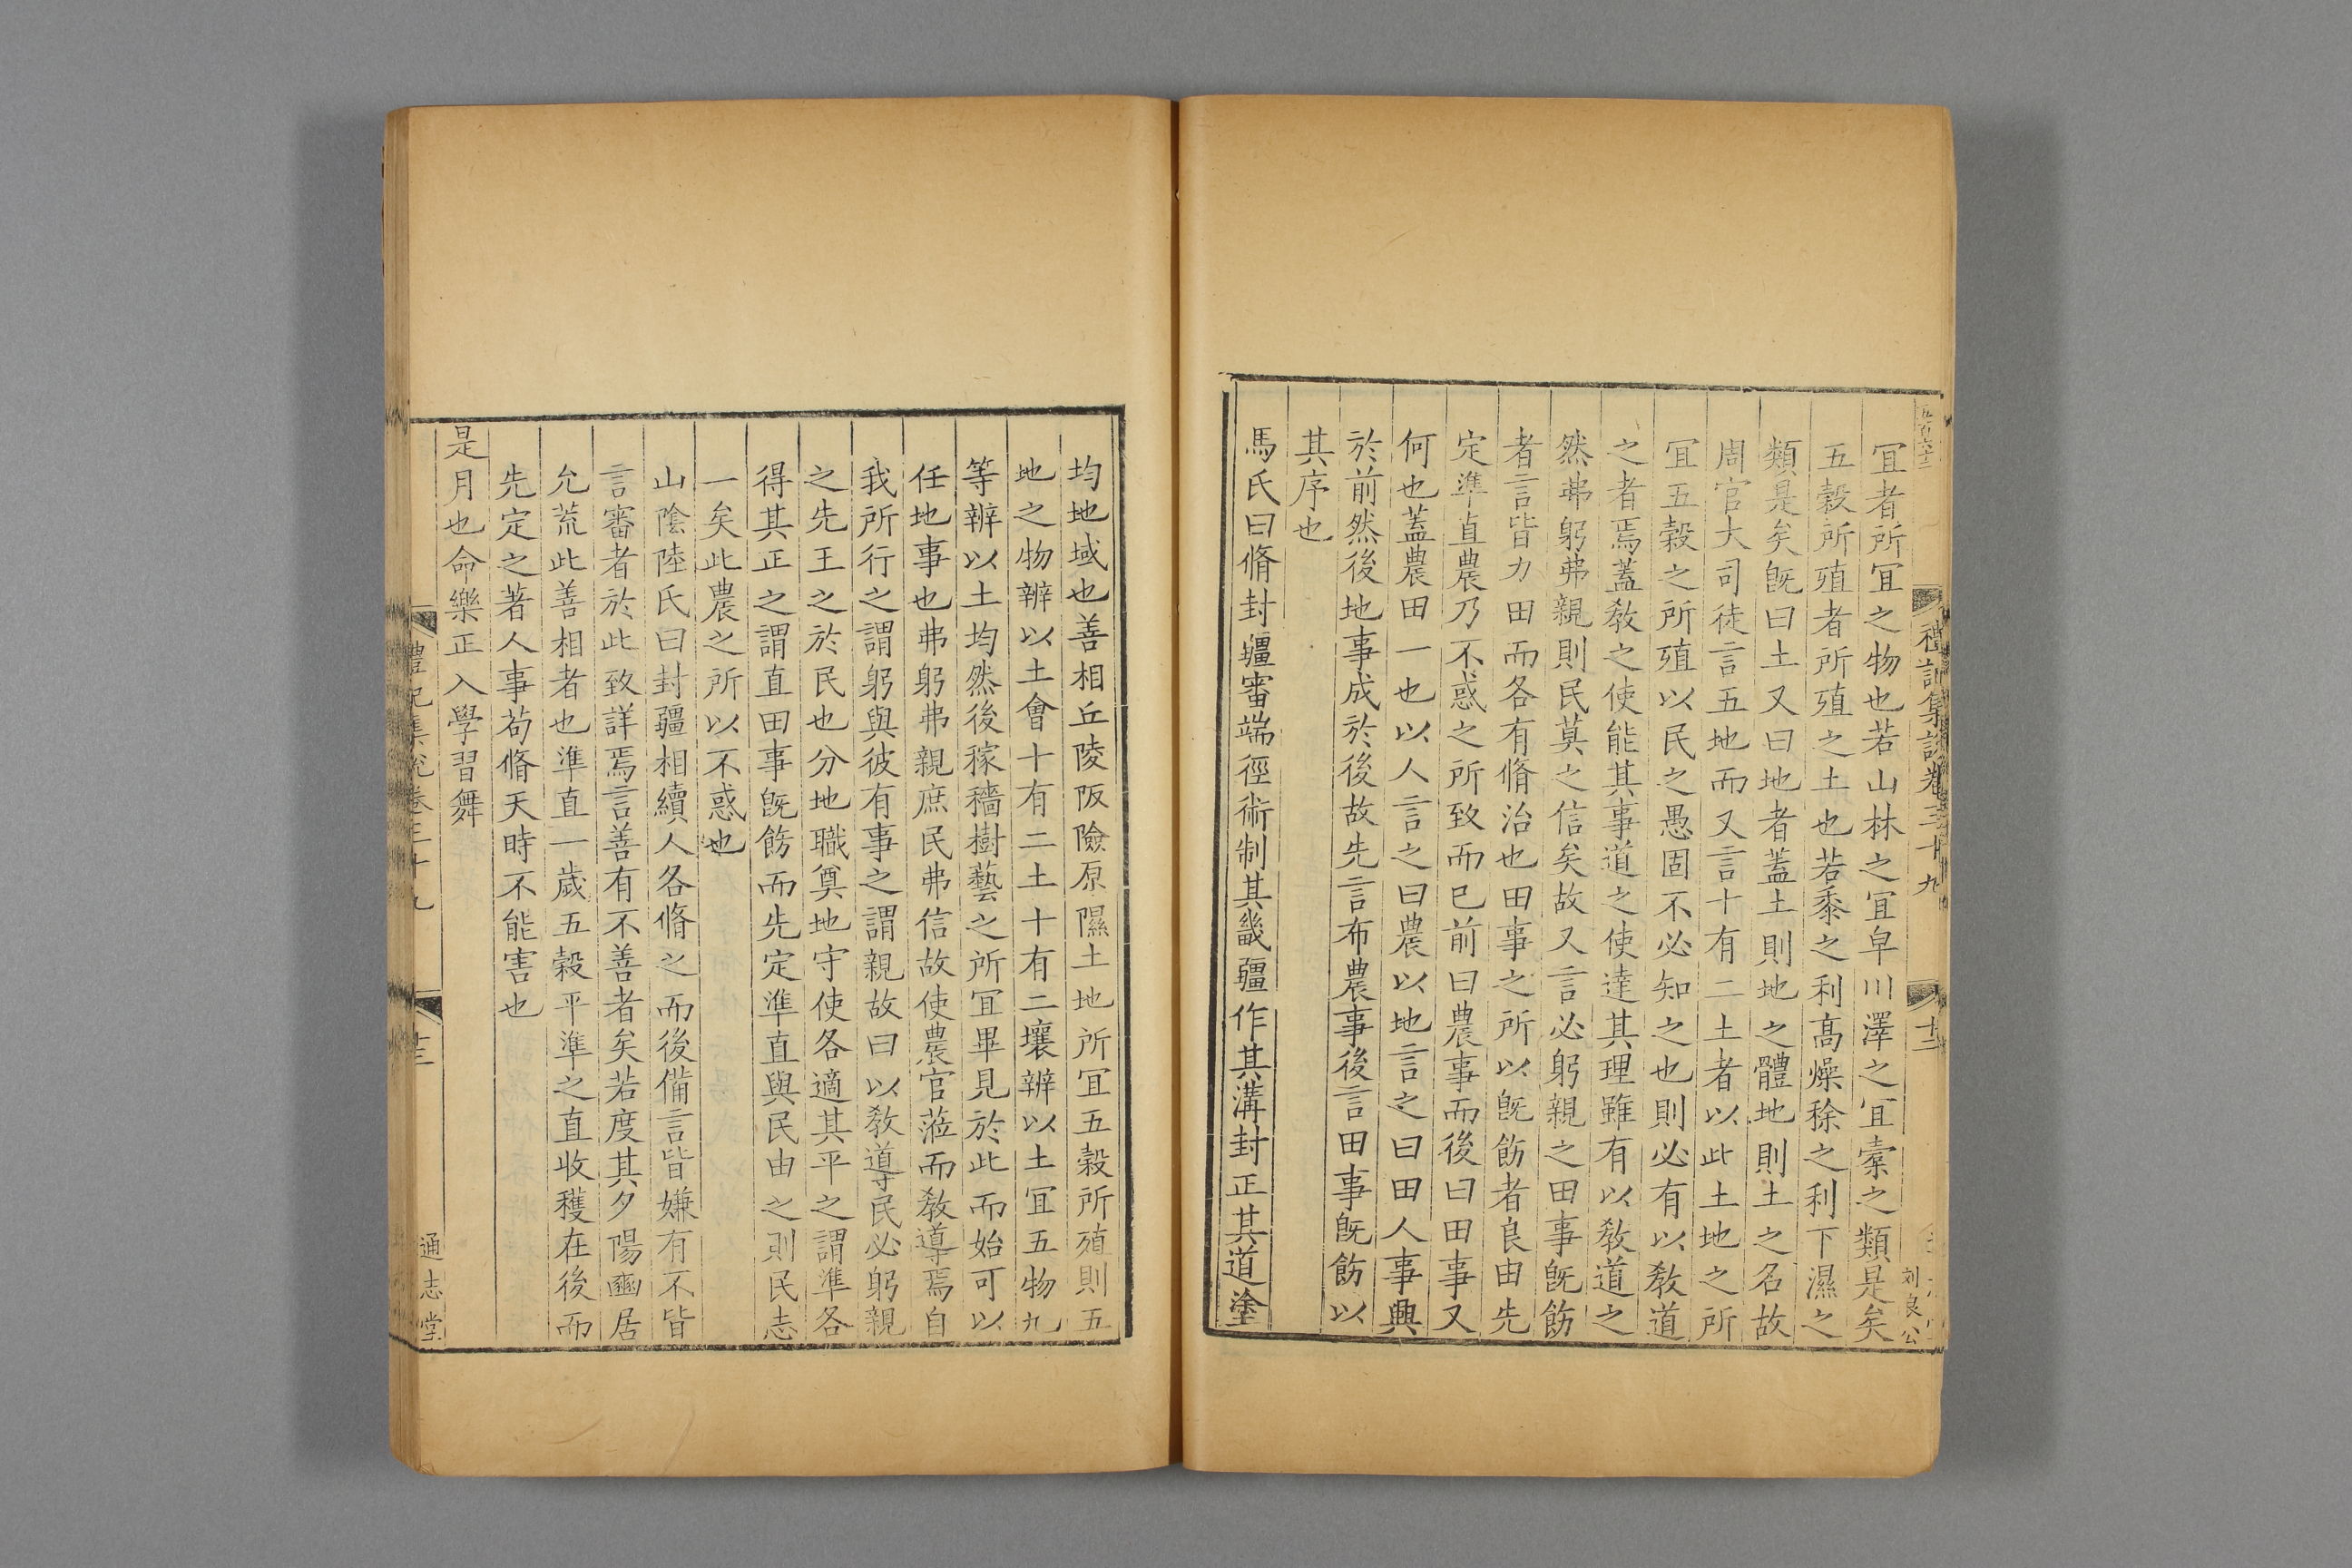 五百六十二
禮記集說卷三十九
十二
刘良公
冝者所冝之物也若山林之冝皁川澤之冝槖之類是矣
五穀所殖者所殖之土也若黍之利髙燥稌之利下濕之
類是矣旣曰土又曰地者蓋土則地之體地則土之名故
周官大司徒言五地而又言十有二土者以此土地之所
冝五穀之所殖以民之愚固不必知之也則必有以敎道
之者焉蓋敎之使能其事道之使達其理雖有以敎道之
然弗躬弗親則民莫之信矣故又言必躬親之田事旣飭
者言皆力田而各有脩治也田事之所以旣飭者良由先
定準直農乃不惑之所致而已前曰農事而後曰田事又
何也蓋農田一也以人言之曰農以地言之曰田人事興
於前然後地事成於後故先言布農事後言田事旣飭以
其序也
馬氏曰脩封疆審端徑術制其畿疆作其溝封正其道塗
均地域也善相丘陵阪險原隰土地所冝五穀所殖則五
地之物辨以土會十有二土十有二壤辨以土冝五物九
等辨以土均然後稼穡樹藝之所冝畢見於此而始可以
任地事也弗躬弗親庶民弗信故使農官蒞而敎導焉自
我所行之謂躬與彼有事之謂親故曰以敎導民必躬親
之先王之於民也分地職奠地守使各適其平之謂準各
得其正之謂直田事旣飭而先定準直與民由之則民志
一矣此農之所以不惑也
山陰陸氏曰封疆相續人各脩之而後備言皆嫌有不皆
言審者於此致詳焉言善有不善者矣若度其夕陽豳居
允荒此善相者也準直一歲五穀平準之直收穫在後而
先定之著人事茍脩天時不能害也
是月也命樂正入學習舞
禮記集說卷三十九
十三
通志堂